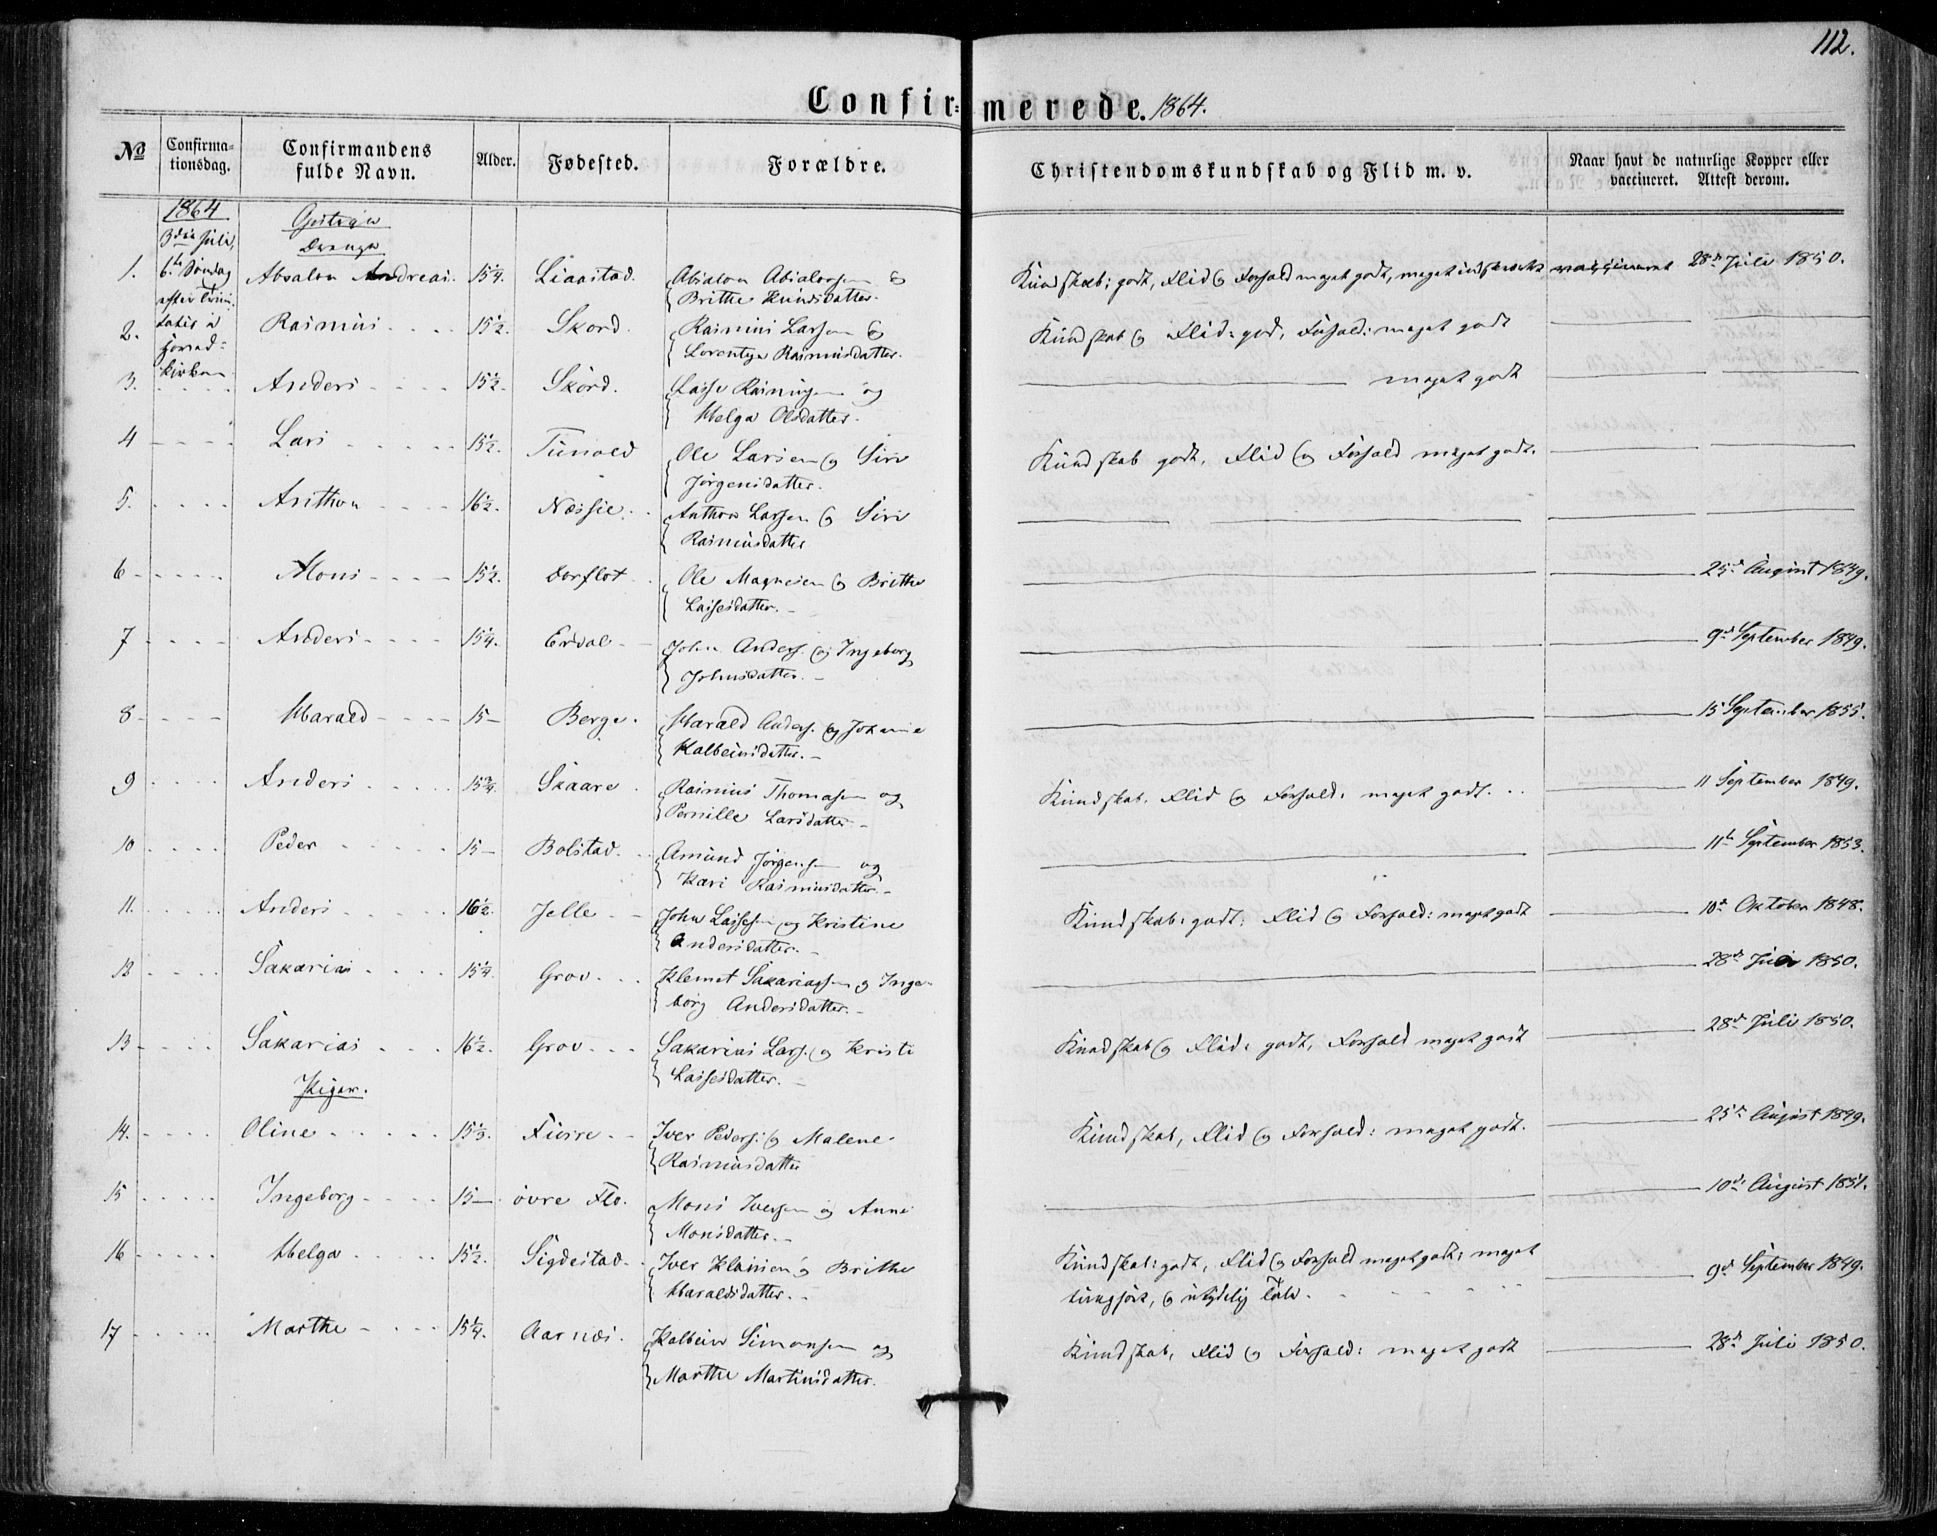 112.
Confirmerede. 1864.
№ Confirmationsdag. Confirmandens fulde Navn. Alder. Fødested. Forældre. Christendomskundskab og Flid m. v. Naar havt de naturlige Kopper eller vaccineret. Attest derom.
1864
3die Juli,
6te Søndag
efter Trini-
tatis i
Hoved-
kirken
Drenge
1. Absalon Andreas. 15¼. Absalon Absalonsen & Kundskab: godt, Flid og Forhold meget godt, vaccineret 28de Juli 1850.
Brithe Knudsdatter.
2. Rasmus 15½. Skord. Rasmus Larsen og Kundskab og Flid: god, Forhold: meget godt
Lorentze Rasmusdatter.
3. Anders 15½. Skord. Lasse Rasmusen og meget godt
Helga Olsdatter.
4 Lars 15½. Tunold Ole Larsen og Siri Kundskab godt, Flid og Forhold meget godt.
Jørgensdatter.
5. Anthon 16½. Næssie. Anthon Larsen og Siri
Rasmusdatter
6 Mons 15½. Dorflot Ole Magnesen og Brithe 25de August 1849.
Lassesdatter.
7 Anders 15¼. Erdal John Anders. og Ingeborg 9de September 1849.
Johnsdatter.
8 Harald 15 Berge. Harald Anders. og Johanne 15 September 1855.
Kolbeinsdatter.
9 Anders 15¾. Skaare Rasmus Thomasen og Kundskab, Flid og Forhold: meget godt. 11 September 1849.
Pernille Larsdatter
10 Peder 15 Bolstad. Amund Jørgensen og 11te September 1853.
Kari Rasmusdatter
11. Anders 16½. Jelle John Lassesen og Kristine Kundskab: godt: Flid og Forhold: meget godt 10de Oktober 1848.
Andersdatter.
12 Sakarias 15¼. Grov Klemet Sakariassen og Inge- 28de Juli 1850.
borg Andersdatter.
13 Sakarias 16½. Grov Sakarias Lars. og Kristi Kundskab og Flid: godt, Forhold meget godt 28de Juli 1850.
Lassesdatter.
Piger.
14. Oline 15⅓. Furre Iver Peders. og Malene Kundskab, Flid og Forhold: meget godt. 25de August 1849.
Rasmusdatter
15 Ingeborg 15 øvre Flo. Mons Iversen og Anne 10de August 1851.
Monsdatter.
16 Helga 15½. Sigdestad Iver Klausen og Brithe Kundskab: godt, Flid og Forhold meget godt: meget 9de September 1849.
Haraldsdatter. tunghørt, og utydelig Tale.
17 Marthe 15¼. Aarnæs. Kolbein Simonsen og Kundskab, Flid og Forhold: meget godt 28de Juli 1850.
Marthe Martinsdatter.